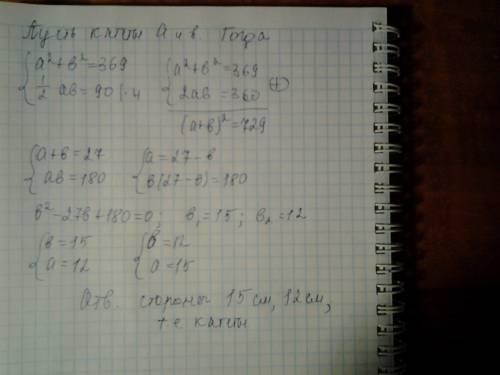 Пусть катеты a и в. Тогда
{a²+в²=369 {a²+в²=369
{½ ав=90 |·4 {2ав=360 ⊕
(a+в)²=729
{a+в=27 {a=27-в
{ав=180 {в(27-в)=180
в²-27в+180=0; в₁=15; в₂=12
{в=15 {в=12
{a=12 {a=15
Отв. стороны 15 см, 12 см,
т.е. катеты